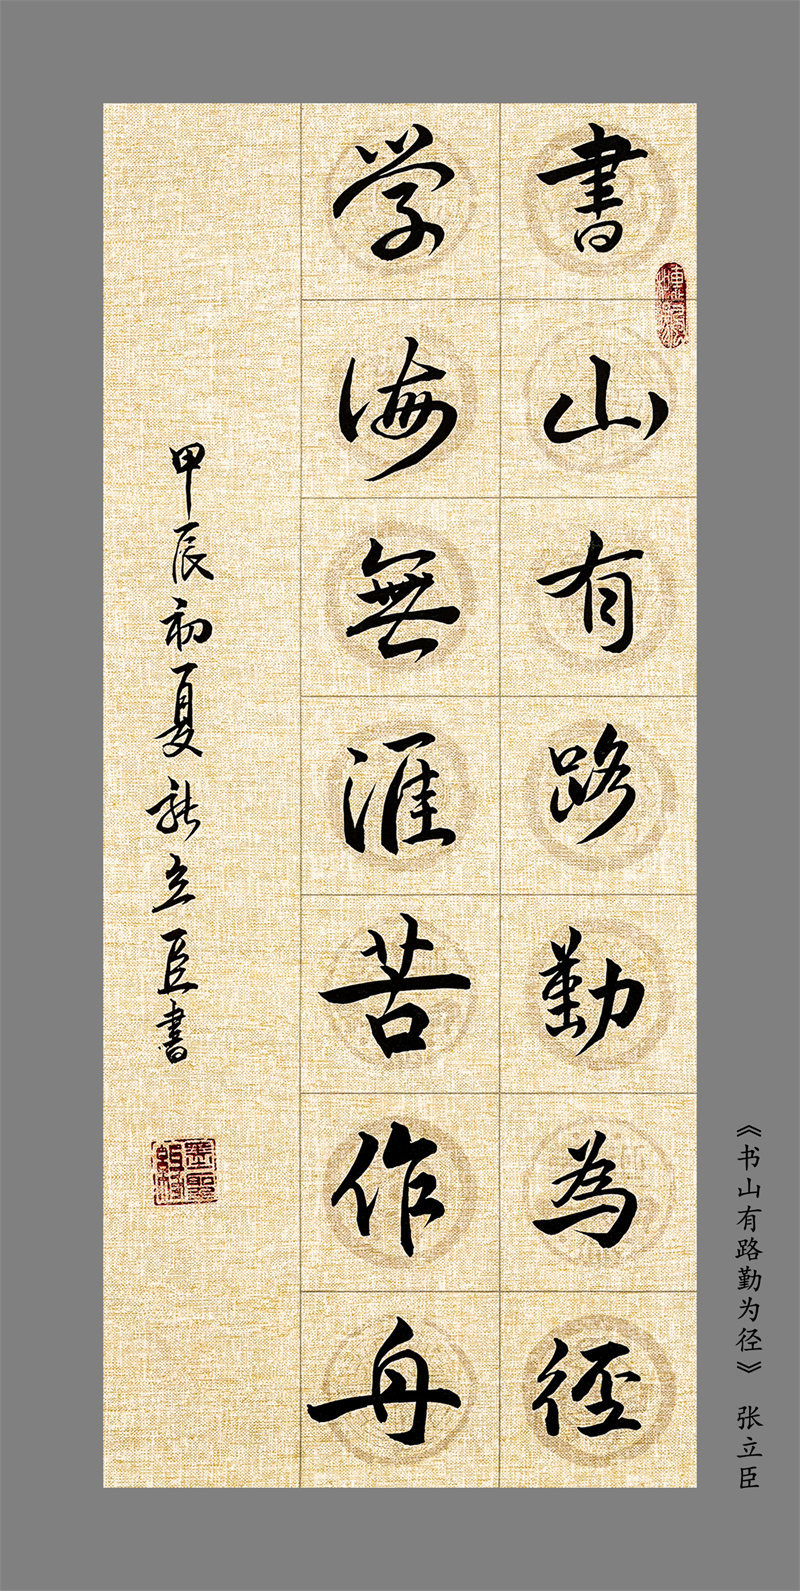 書山有路勤為径
学海無涯苦作舟
甲辰初夏张立臣書
《书山有路勤为径》 张立臣